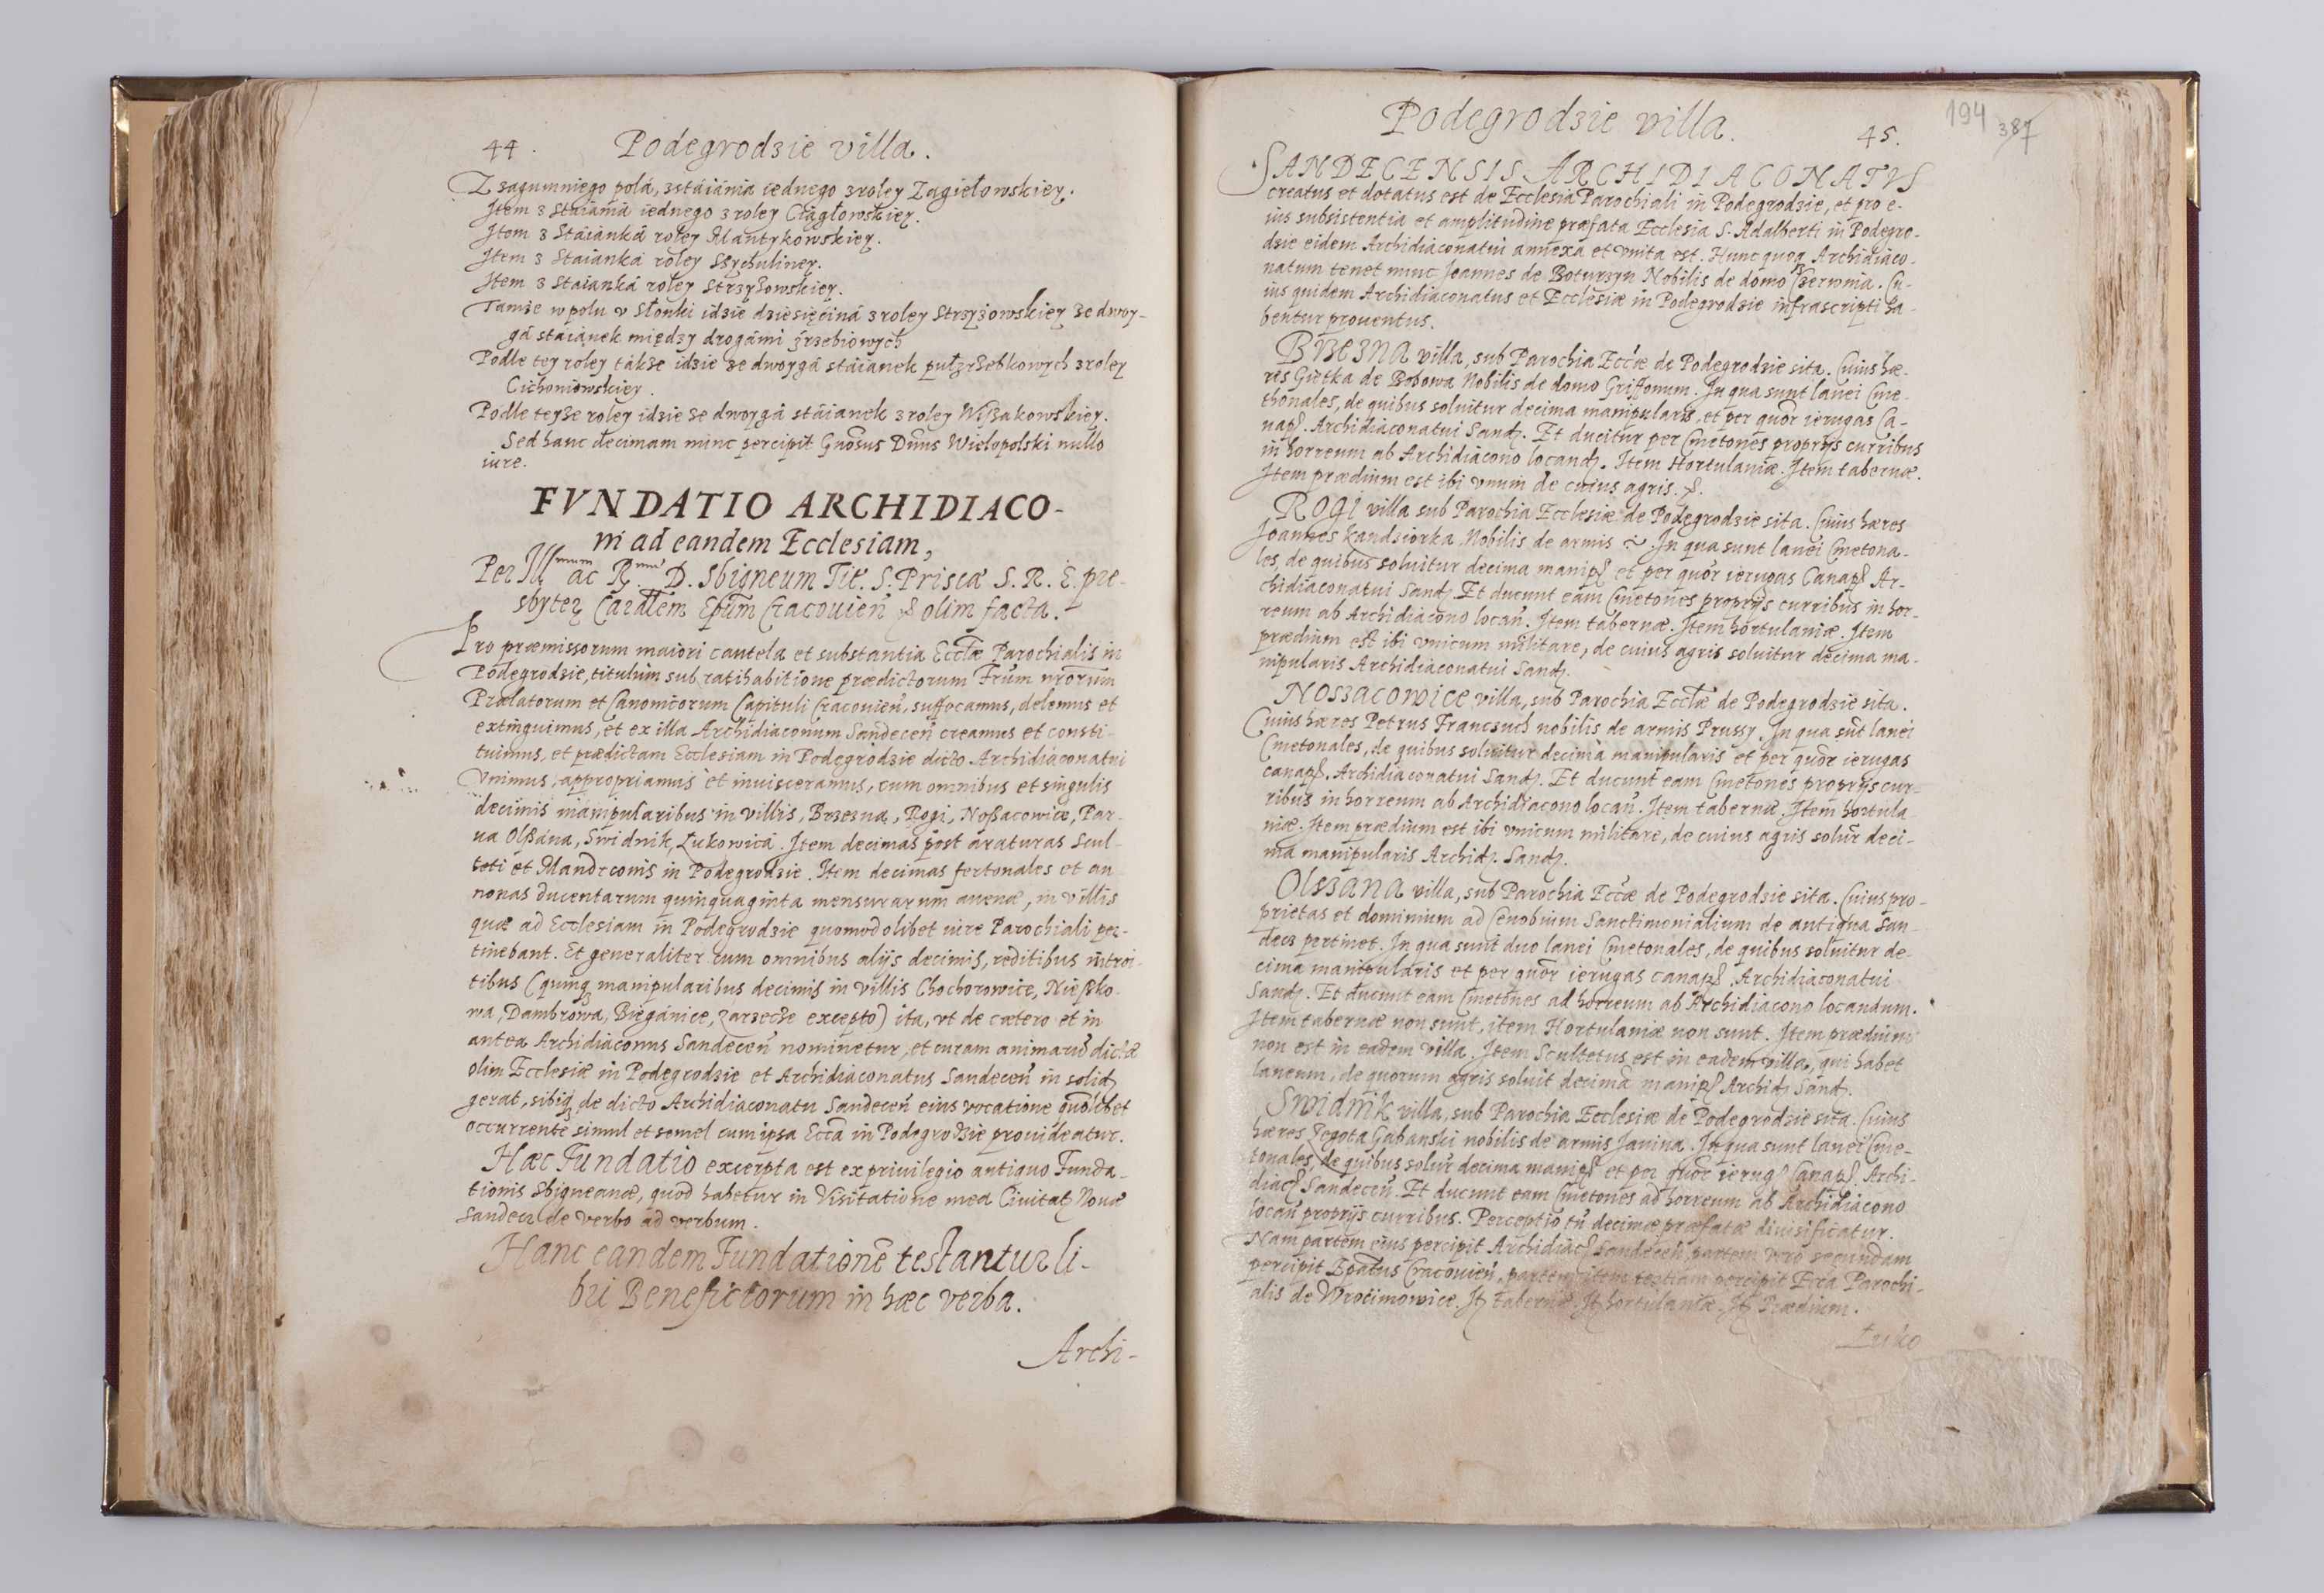 44.
Podegrodzie villa.
Z zagumniego polá, z stáiánia iednego z roley Zagiełowskiey.
Item z Stáiániá iednego z roley Ciągłowskiey.
Item z Stáiánká roley Mantykowskiey.
Item z Staiánká roley Szychuliney.
Item z Staiánká roley Strzyżowskiey.
Tamże w polu v Słonki idzie dziesięćiná z roley Strzyżowskiey ze dwoy-
gá stáiánek między drogámi źrzebiowych
Podle tey roley tákże idzie ze dwoygá stáiánek pułzrzebkowych z roley
Cichoniowskiey.
Podle teyże roley idzie ze dwoygá stáianek z roley Wißakowskiey.
Sed hanc decimam nunc percipit Gnosus Dnus Wielopolski nullo
iure.
FVNDATIO ARCHIDIACO-
ni ad eandem Ecclesiam,
Per Illmum ac Rmum D. Sbigneum Tit. S. Priscæ S. R. E. pre-
sbyter Cardlem Epum Cracouien & olim facta.
Pro præmissorum maiori cautela et substantia Ecclæ Parochialis in
Podegrodzie, titulum sub ratihabitione prædictorum Frum nrorum
Prælatorum et Canonicorum Capituli Cracouien, suffocamus, delemus et
extinguimus, et ex illa Archidiaconum Sandecen creamus et consti-
tuimus, et prædictam Ecclesiam in Podegrodzie dicto Archidiaconatui
Vnimus, appropriamus et inuisceramus, cum omnibus et singulis
decimis manipularibus in villis, Brzezna, Rogi, Noßacowice, Par-
ua Olßana, Swidnik, Łukowica. Item decimas post araturas Scul-
teti et Mandreconis in Podegrodzie. Item decimas fertonales et an-
nonas ducentarum quinquaginta mensurarum auenæ, in villis
quæ ad Ecclesiam in Podegrodzie quomodolibet iure Parochiali per-
tinebant. Et generaliter cum omnibus alijs decimis, reditibus introi-
tibus (quinq manipularibus decimis in villis Chochorowice, Nießko-
wa, Dambrowa, Biegánice, Zarzecze excepto) ita, vt de cætero et in
antea Archidiaconus Sandecen nominetur, et curam animarũ dictæ
olim Ecclesiæ in Podegrodzie et Archidiaconatus Sandecen in solid
gerat, sibiq de dicto Archidiaconatu Sandecen eius vocatione quolibet
occurrente simul et semel cum ipsa Ecca in Podegrodzie prouideatur.
Hæc Fundatio excerpta est ex priuilegio antiquo Funda-
tionis Sbigneanæ, quod habetur in Visitatione mea Ciuitat Nouæ
Sandecz de verbo ad verbum.
Hanc eandem Fundationẽ testantur li-
bri Beneficiorum in hæc verba.
Archi-
Podegrodzie villa.
45.
194
387
SANDECENSIS ARCHIDIACONATVS
creatus et dotatus est de Ecclesia Parochiali in Podegrodzie, et pro e-
ius subsistentia et amplitudine præfata Ecclesia S. Adalberti in Podegro-
dzie eidem Archidiaconatui annexa et vnita est. Hunc quoq Archidiaco-
natum tenet nunc Ioannes de Boturzyn Nobilis de domo Czerwnia. Cu-
ius quidem Archidiaconatus et Ecclesiæ in Podegrodzie infrascripti ha-
bentur prouentus.
Brzezna villa, sub Parochia Eccæ de Podegrodzie sita. Cuius hæ-
res Gietka de Bobowa Nobilis de domo Griffonum. In qua sunt lanei Cme-
thonales, de quibus soluitur decima manipularis, et per quor ierugas Ca-
nap. Archidiaconatui Sand. Et ducitur per Cmetones proprijs curribus
in horreum ab Archidiacono locand. Item Hortulaniæ. Item tabernæ.
Item prædium est ibi vnum de cuius agris. &.
Rogi villa sub Parochia Ecclesiæ de Podegrodzie sita. Cuius hæres
Joannes Kandziorka Nobilis de armis In qua sunt lanei Cmetona-
les, de quibus soluitur decima manip et per quor ierugas Canap Ar-
chidiaconatui Sand. Et ducunt eam Cmetones proprijs curribus in hor-
reum ab Archidiacono locan. Item tabernæ. Item hortulaniæ. Item
prædium est ibi vnicum militare, de cuius agris soluitur decima ma-
nipularis Archidiaconatui Sand.
Noszacowice villa, sub Parochia Ecclæ de Podegrodzie sita.
Cuius hæres Petrus Franczuch nobilis de armis Prussy. In qua sũt lanei
Cmetonales, de quibus soluitur decima manipularis et per quor ierugas
canap. Archidiaconatui Sand. Et ducunt eam Cmetones proprijs cur-
ribus in horreum ab Archidiacono locan. Item tabernæ. Item hortula-
niæ. Item prædium est ibi vnicum militare, de cuius agris solur deci-
ma manipularis Archid. Sand.
Olszana villa, sub Parochia Eccæ de Podegrodzie sita. Cuius pro-
prietas et dominium ad Cenobium Sanctimonialium de antiqua San-
decz pertinet. In qua sunt duo lanei Cmetonales, de quibus soluitur de-
cima manipularis et per quor ierugas canap. Archidiaconatui
Sand. Et ducunt eam Cmetones ad horreum ab Archidiacono locandum.
Item tabernæ non sunt, item Hortulaniæ non sunt. Item prædium
non est in eadem villa. Item Scultetus est in eadem villa, qui habet
laneum, de quorum agris soluit decimã manip Archid Sand.
Swidnik villa, sub Parochia Ecclesiæ de Podegrodzie sita. Cuius
hæres Zegota Gabanski nobilis de armis Janina. In qua sunt lanei Cme-
tonales, de quibus solur decima manip et per quor ierug Canap. Archi-
diac Sandecen. Et ducunt eam Cmetones ad horreum ab Archidiacono
locan proprijs curribus. Perceptio tn decimæ præfatæ diuisificatur.
Nam partem eius percipit Archidiac Sandecen partem vro secundam
percipit Epatus Cracouien, partem item tertiam percipit Ecca Parochi-
alis de Wrocimowice. It tabernæ. It hortulaniæ. It Prædium.
Łuko